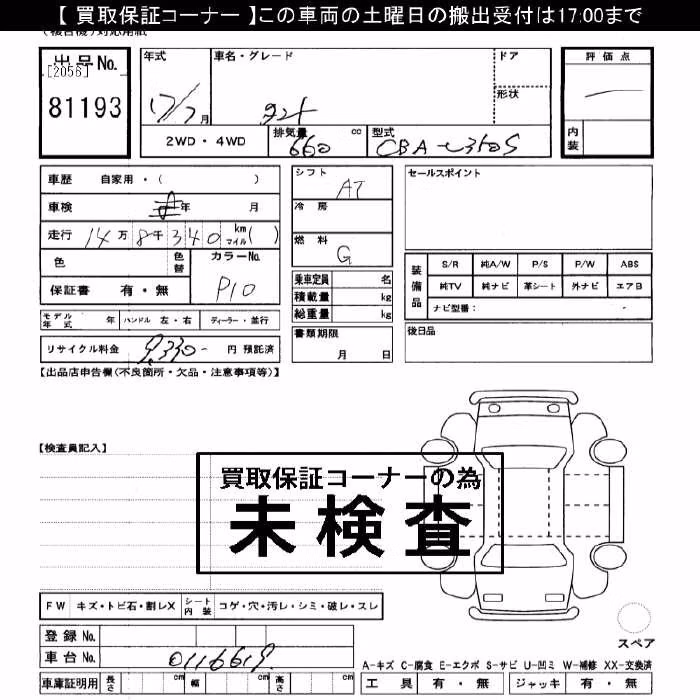 【 買取保証コーナー 】この車両の土曜日の搬出受付は17:00まで
出品No.
[2056]
81193
年式
車名・グレード
ドア
形状
17/7月
タント
2WD・4WD
排気量 660 cc
型式 CBA-L350S
評価点
内装
車歴 自家用・( )
車検 年 月
走行 14万 8千 340 km マイル( )
色
色替
カラーNo.
P10
保証書 有・無
モデル年式 年 ハンドル 左・右 ディーラー・並行
リサイクル料金 9,330- 円 預託済
シフト AT
冷房
燃料 G
乗車定員 名
積載量 kg
総重量 kg
書類期限
月 日
セールスポイント
装備品
S/R 純A/W P/S P/W ABS
純TV 純ナビ 革シート 外ナビ エアB
ナビ型番:
後日品
【出品店申告欄(不良箇所・欠品・注意事項等)】
【検査員記入】
買取保証コーナーの為
未検査
FW キズ・トビ石・割レX シート内装 コゲ・穴・汚レ・シミ・破レ・スレ
登録No.
車台No. 0116619
車庫証明用 長さ cm 幅 cm 高さ cm
スペア
A-キズ C-腐食 E-エクボ S-サビ U-凹ミ W-補修 XX-交換済
工具 有・無 ジャッキ 有・無